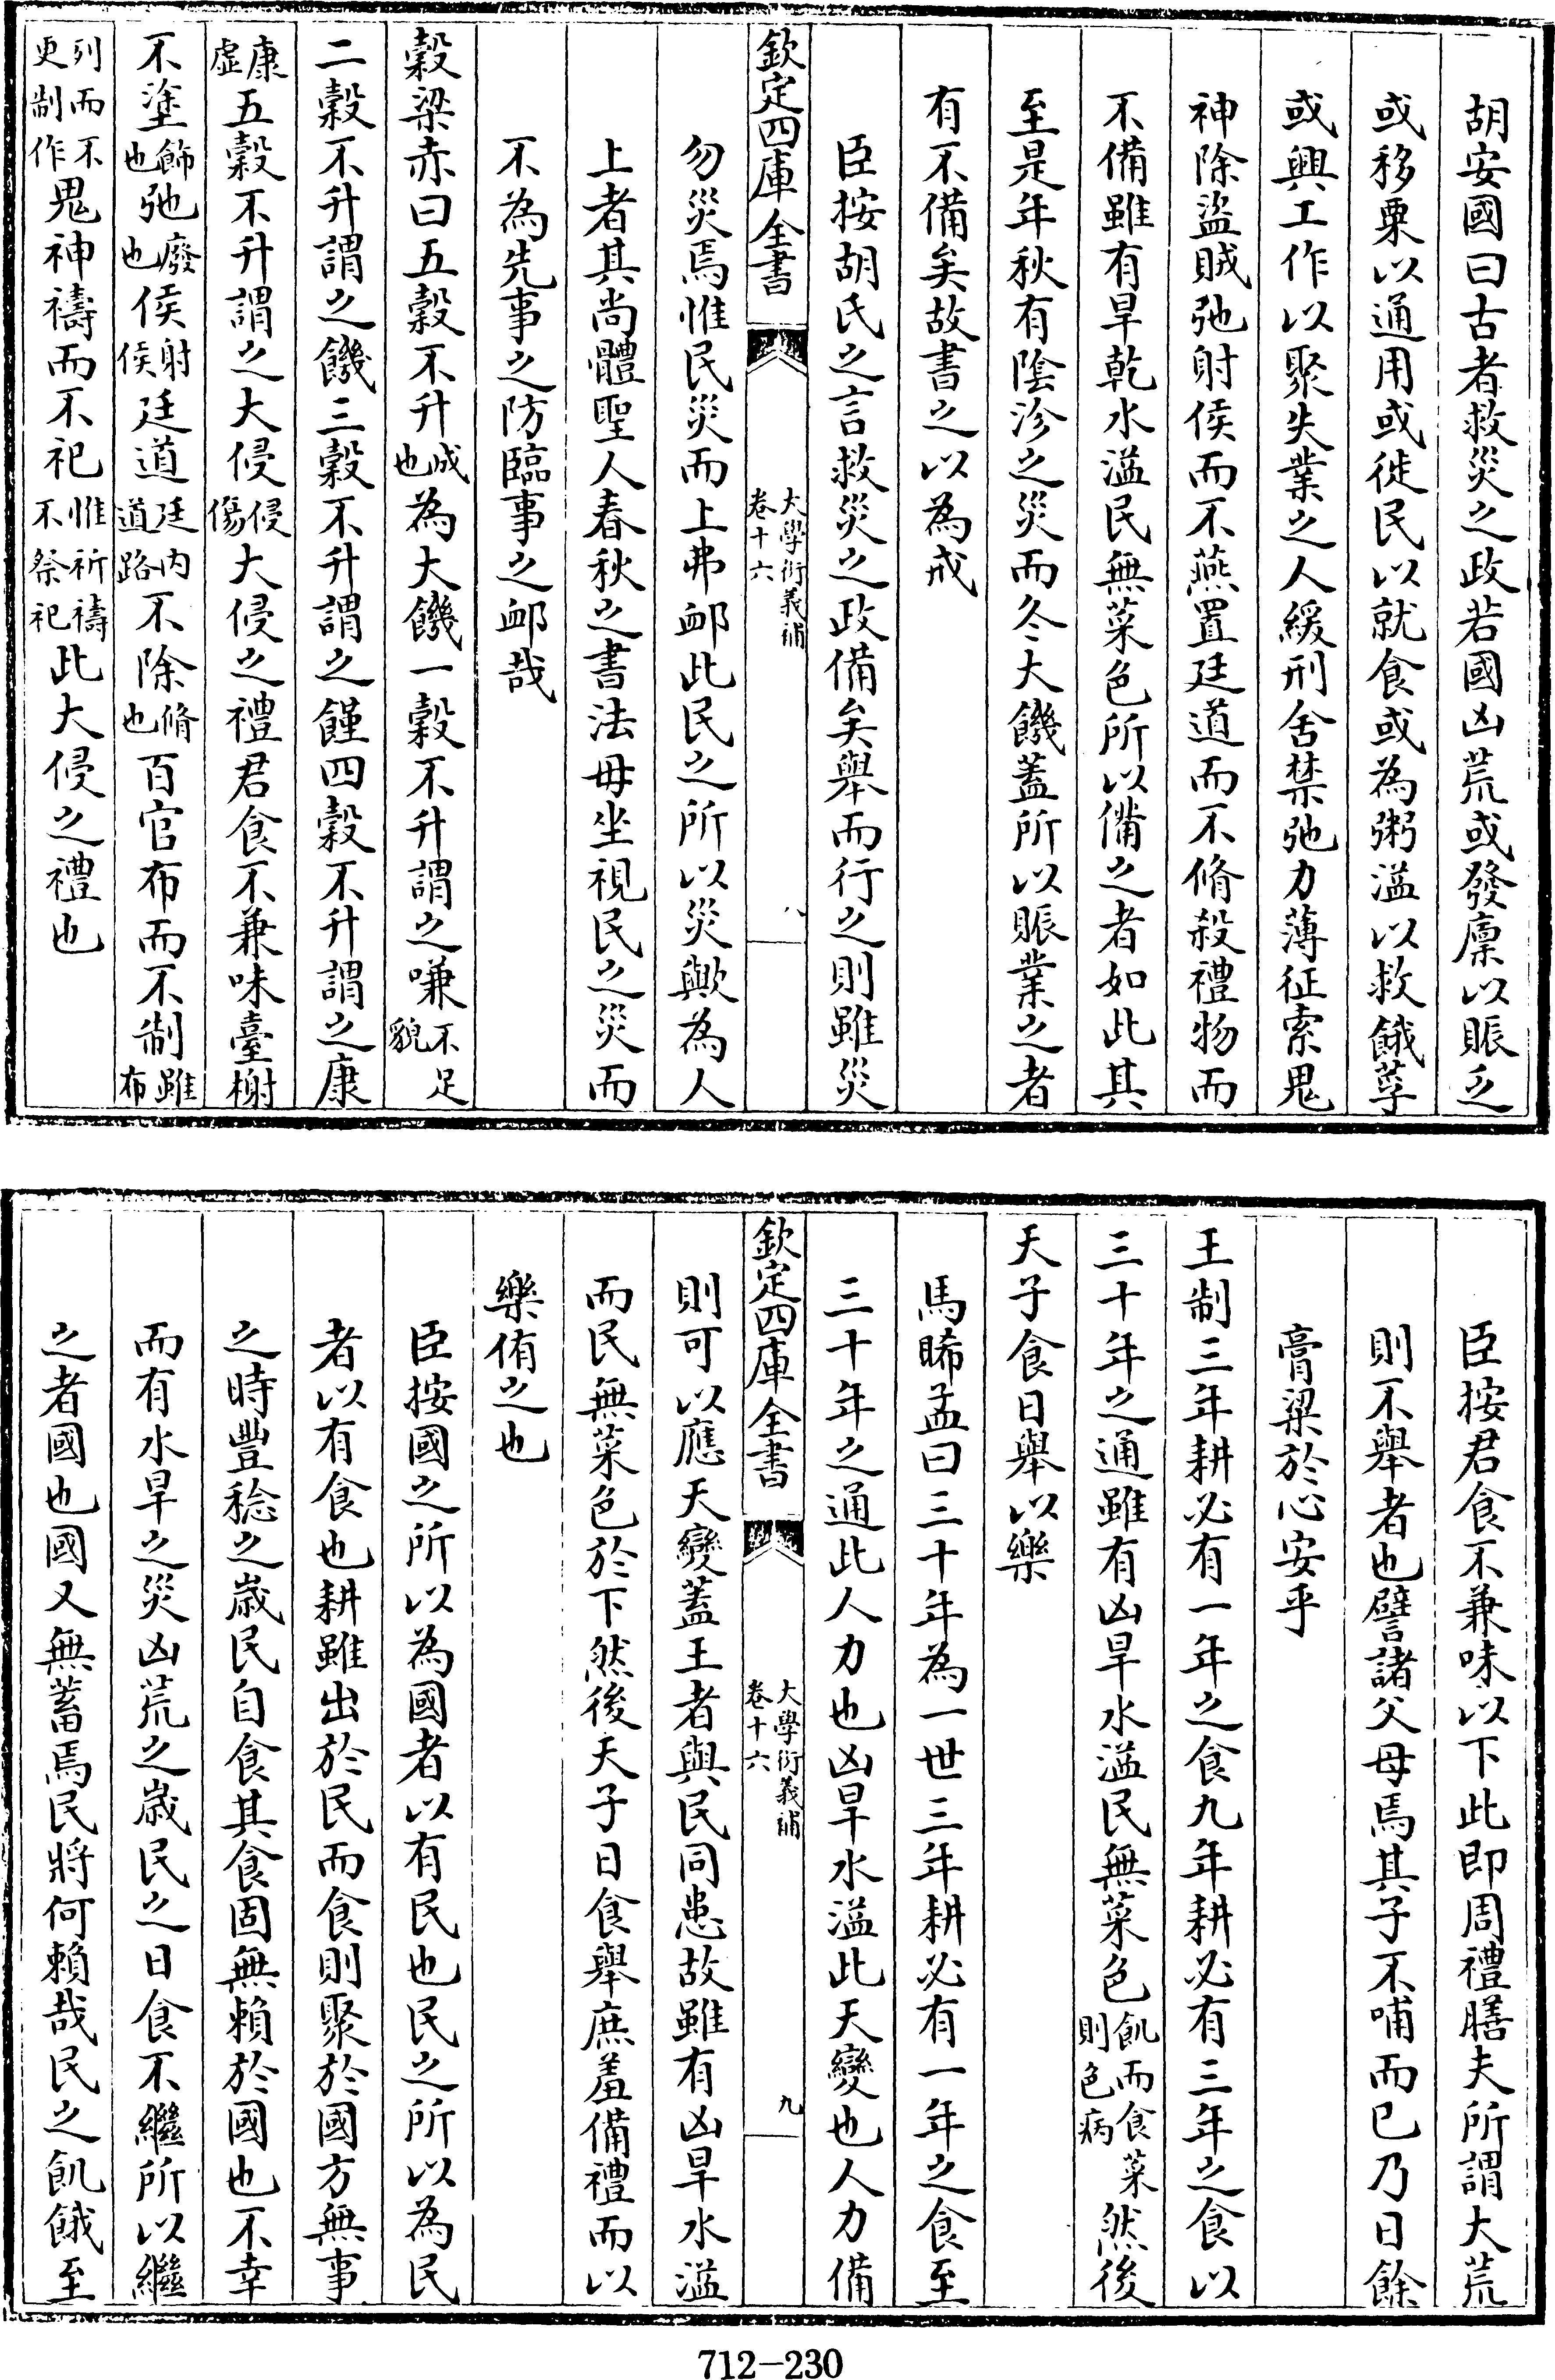 胡安國曰古者救災之政若國凶荒或發廩以賑乏
或移粟以通用或徙民以就食或為粥溢以救餓莩
或興工作以聚失業之人緩刑舍禁弛力薄征索鬼
神除盜賊弛射侯而不燕置廷道而不脩殺禮物而
不備雖有旱乾水溢民無菜色所以備之者如此其
至是年秋有陰沴之災而冬大饑蓋所以賑業之者
有不備矣故書之以為戒
臣按胡氏之言救災之政備矣舉而行之則雖災
欽定四庫全書
大學衍義補
卷十六
八
勿災焉惟民災而上弗卹此民之所以災歟為人
上者其尚體聖人春秋之書法毋坐視民之災而
不為先事之防臨事之卹哉
穀梁赤曰五穀不升成也為大饑一穀不升謂之嗛不足貌
二穀不升謂之饑三穀不升謂之饉四穀不升謂之康
康虛五穀不升謂之大侵侵傷大侵之禮君食不兼味臺榭
不塗飾也弛廢也侯射侯廷道廷內道路不除脩也百官布而不制雖布
列而不更制作鬼神禱而不祀惟祈禱不祭祀此大侵之禮也
臣按君食不兼味以下此即周禮膳夫所謂大荒
則不舉者也譬諸父母焉其子不哺而已乃日餘
膏粱於心安乎
王制三年耕必有一年之食九年耕必有三年之食以
三十年之通雖有凶旱水溢民無菜色飢而食菜則色病然後
天子食日舉以樂
馬睎孟曰三十年為一世三年耕必有一年之食至
三十年之通此人力也凶旱水溢此天變也人力備
欽定四庫全書
大學衍義補
卷十六
九
則可以應天變蓋王者與民同患故雖有凶旱水溢
而民無菜色於下然後天子日食舉庶羞備禮而以
樂侑之也
臣按國之所以為國者以有民也民之所以為民
者以有食也耕雖出於民而食則聚於國方無事
之時豐稔之歲民自食其食固無賴於國也不幸
而有水旱之災凶荒之歲民之日食不繼所以繼
之者國也國又無蓄焉民將何賴哉民之飢餓至
712-230